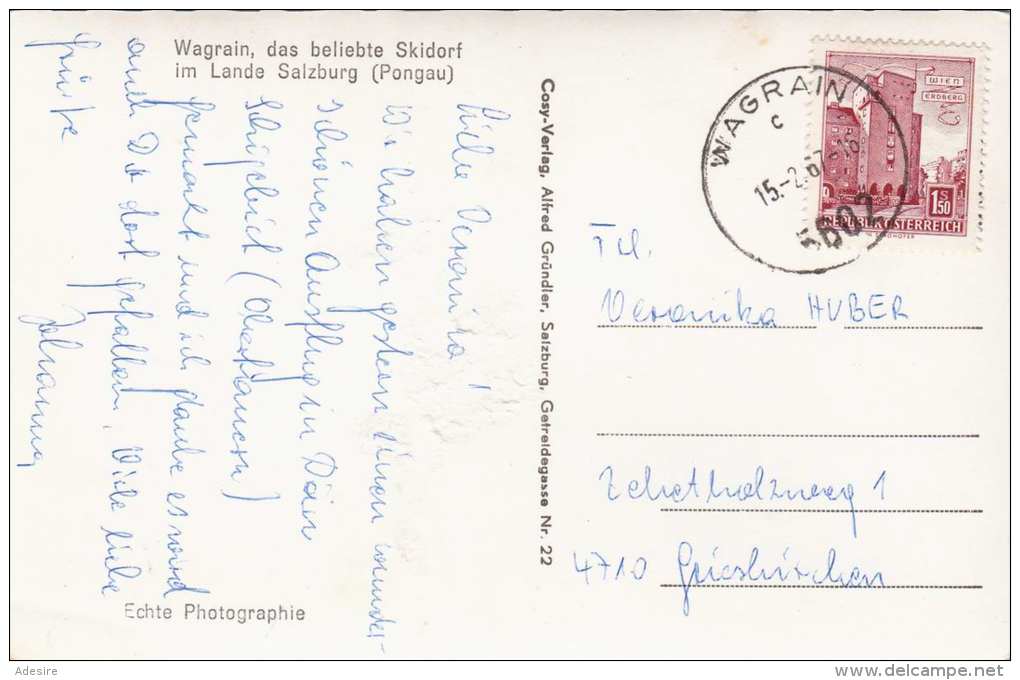 Wagrain, das beliebte Skidorf
im Lande Salzburg (Pongau)
Liebe Veronika!
Wir haben gestern einen wunder-
schönen Ausflug in Dein
Schigebiet (Obertauern)
gemacht und ich glaube es wird
auch Dir dort gefallen. Viele liebe
Grüße
Johanna
Echte Photographie
Cosy-Verlag, Alfred Gründler, Salzburg, Getreidegasse Nr. 22
WAGRAIN
c
15.-2.67-16
5602
WIEN
ERDBERG
1 S 50
REPUBLIK ÖSTERREICH
Frl.
Veronika HUBER
1
4710 Grieskirchen
Adesire
www.delcampe.net